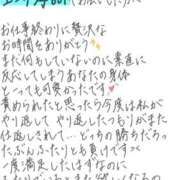 お仕事終わりに贅沢な
お時間をありがとう✨
まだ何もしていないのに素直に
反応してしまうあなたの身体
とっても可愛かったです♥
責められたと思ったら今度は私が
やって やり返したつもりがまた
仕返しされて…どっちの勝ちだろっ
たぶんふたりとも負けです
一度満足したはずなのに